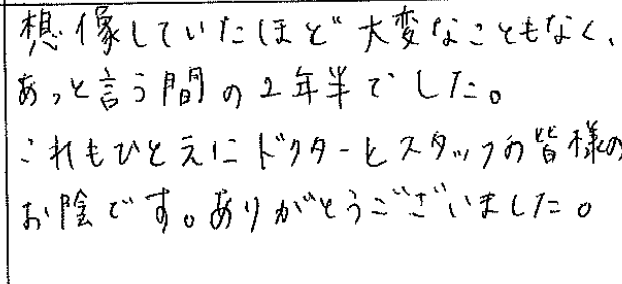 想像していたほど大変なこともなく、
あっと言う間の2年半でした。
これもひとえにドクターとスタッフの皆様の
お陰です。ありがとうございました。